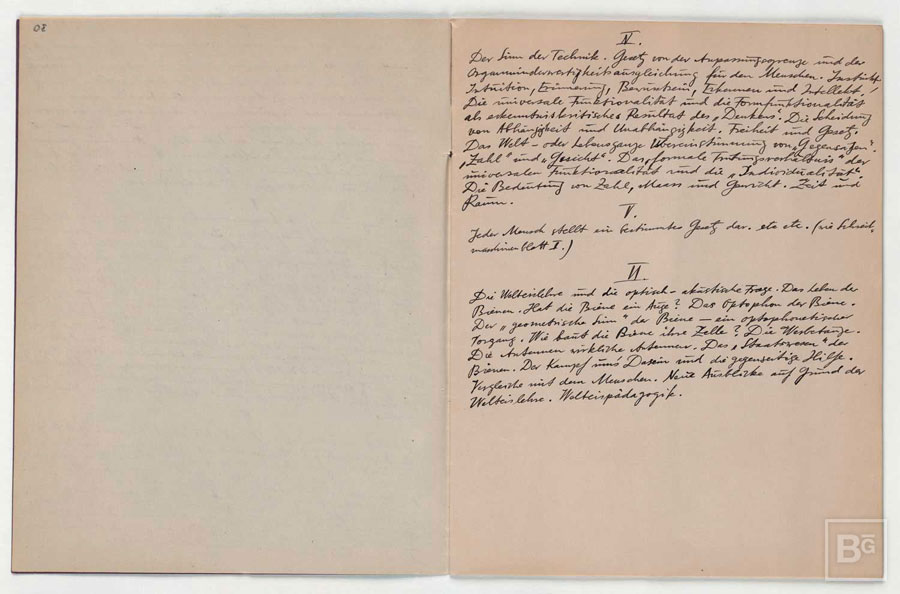 80
IV.
Der Sinn der Technik. Gesetz von der Anpassungsgrenze und der
Organminderwertigkeitsausgleichung für den Menschen. Instinkt,
Intuition, Erinnerung, Bewusstsein, Erkennen und Intellekt!
Die universale Funktionalität und die Formfunktionalität
als erkenntniskritisches Resultat des „Denkens". Die Scheidung
von Abhängigkeit und Unabhängigkeit. Freiheit und Gesetz.
Das Welt- oder Lebensganze Übereinstimmung von „Gegensätzen".
„Zahl" und „Gesicht". Das „formale" der
universalen Funktionalität und die „Individualität".
Die Bedeutung von Zahl, Maass und Gewicht. Zeit und
Raum.
V.
Jeder Mensch stellt ein bestimmtes Gesetz dar. etc etc. (wie Schreib-
maschinenblatt I.)
VI.
Die Welteislehre und die optisch-akustische Frage. Das Leben der
Bienen. Hat die Biene ein Auge? Das Optophon der Biene.
Der „geometrische Sinn" der Biene – ein optophonetischer
Vorgang. Wie baut die Biene ihre Zelle? Die Werbetänze.
Die Antennen wirkliche Antennen. Das „Staatswesen" der
Bienen. Der Kampf ums Dasein und die gegenseitige Hilfe.
Vergleiche mit dem Menschen. Neue Ausblicke auf Grund der
Welteislehre. Welteispädagogik.
BG